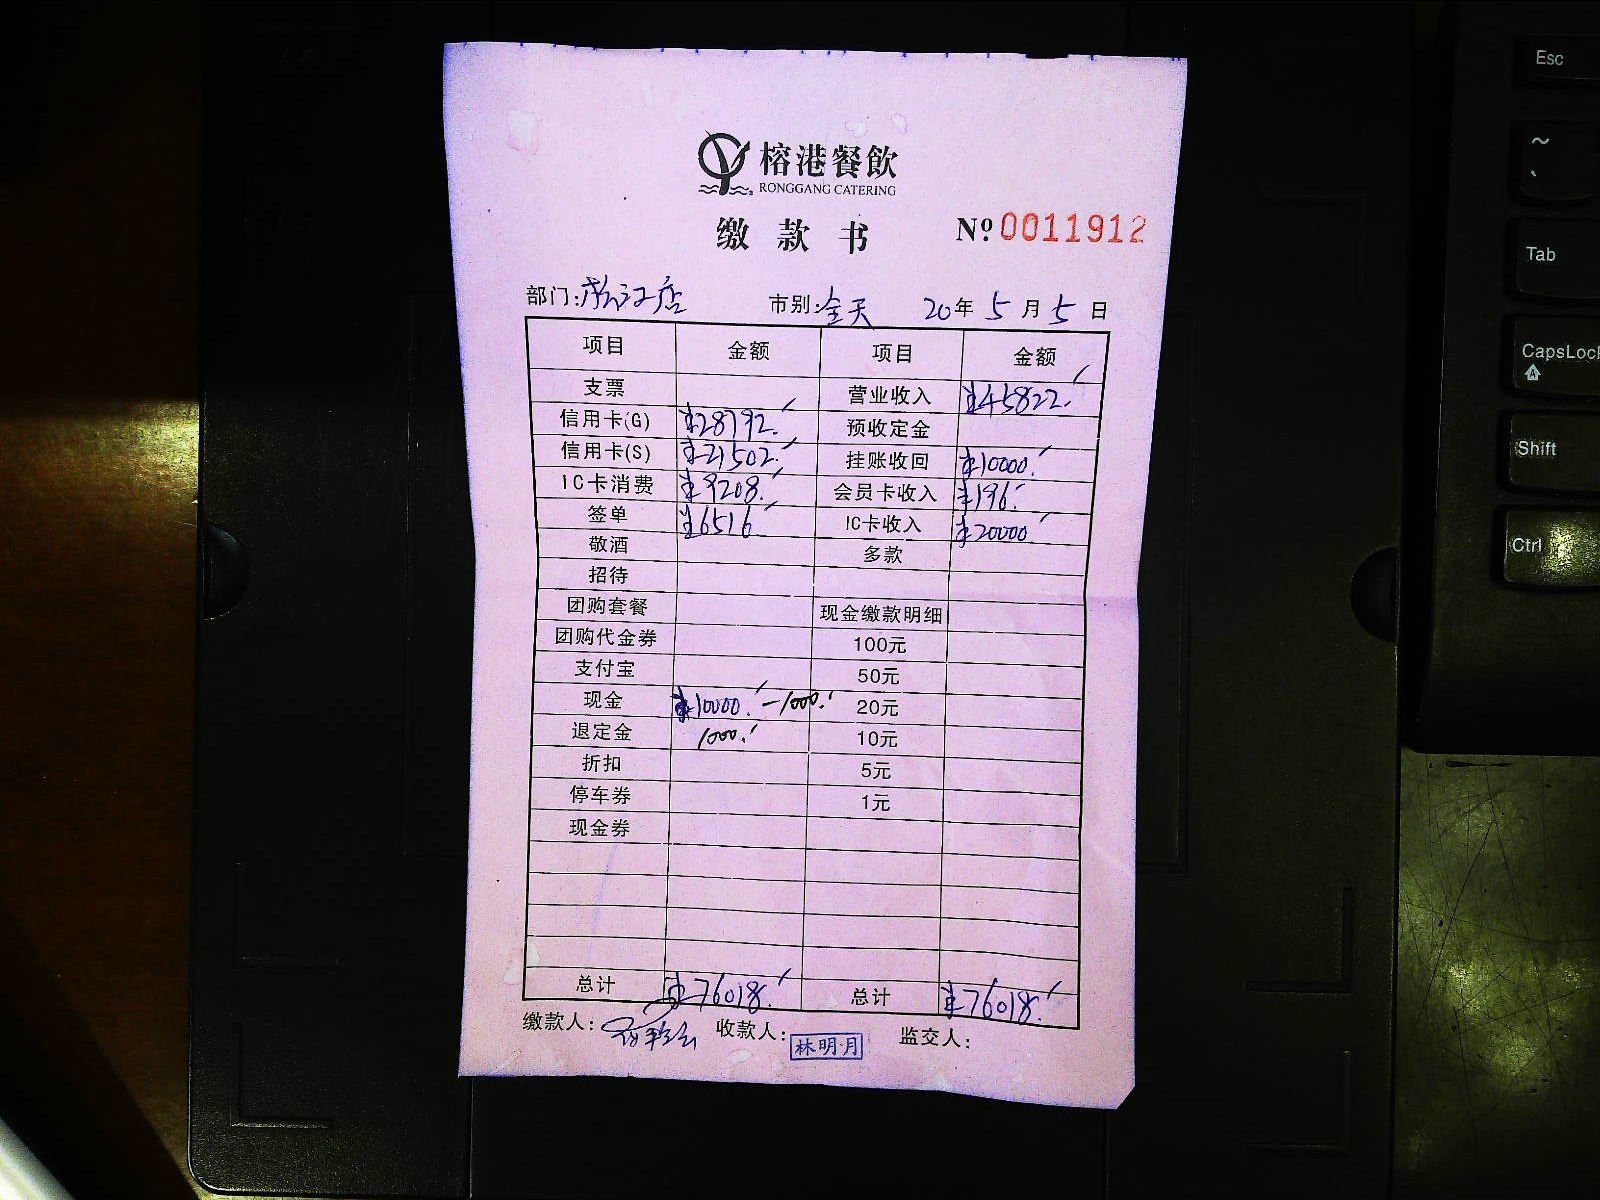 榕港餐飲
RONGGANG CATERING
缴款书 Nº 0011912
部门: 市别:全天 20年5月5日
项目 金额 项目 金额
支票 营业收入 ¥45822.
信用卡(G) ¥28792. 预收定金
信用卡(S) ¥21502. 挂账收回 ¥10000.
IC卡消费 ¥9208. 会员卡收入 ¥196.
签单 ¥6516 IC卡收入 ¥20000
敬酒 多款
招待
团购套餐 现金缴款明细
团购代金券 100元
支付宝 50元
现金 ¥10000. -1000. 20元
退定金 1000. 10元
折扣 5元
停车券 1元
现金券
总计 ¥76018. 总计 ¥76018.
缴款人: 收款人: 林明月 监交人:
Esc
~
`
Tab
CapsLock
Shift
Ctrl